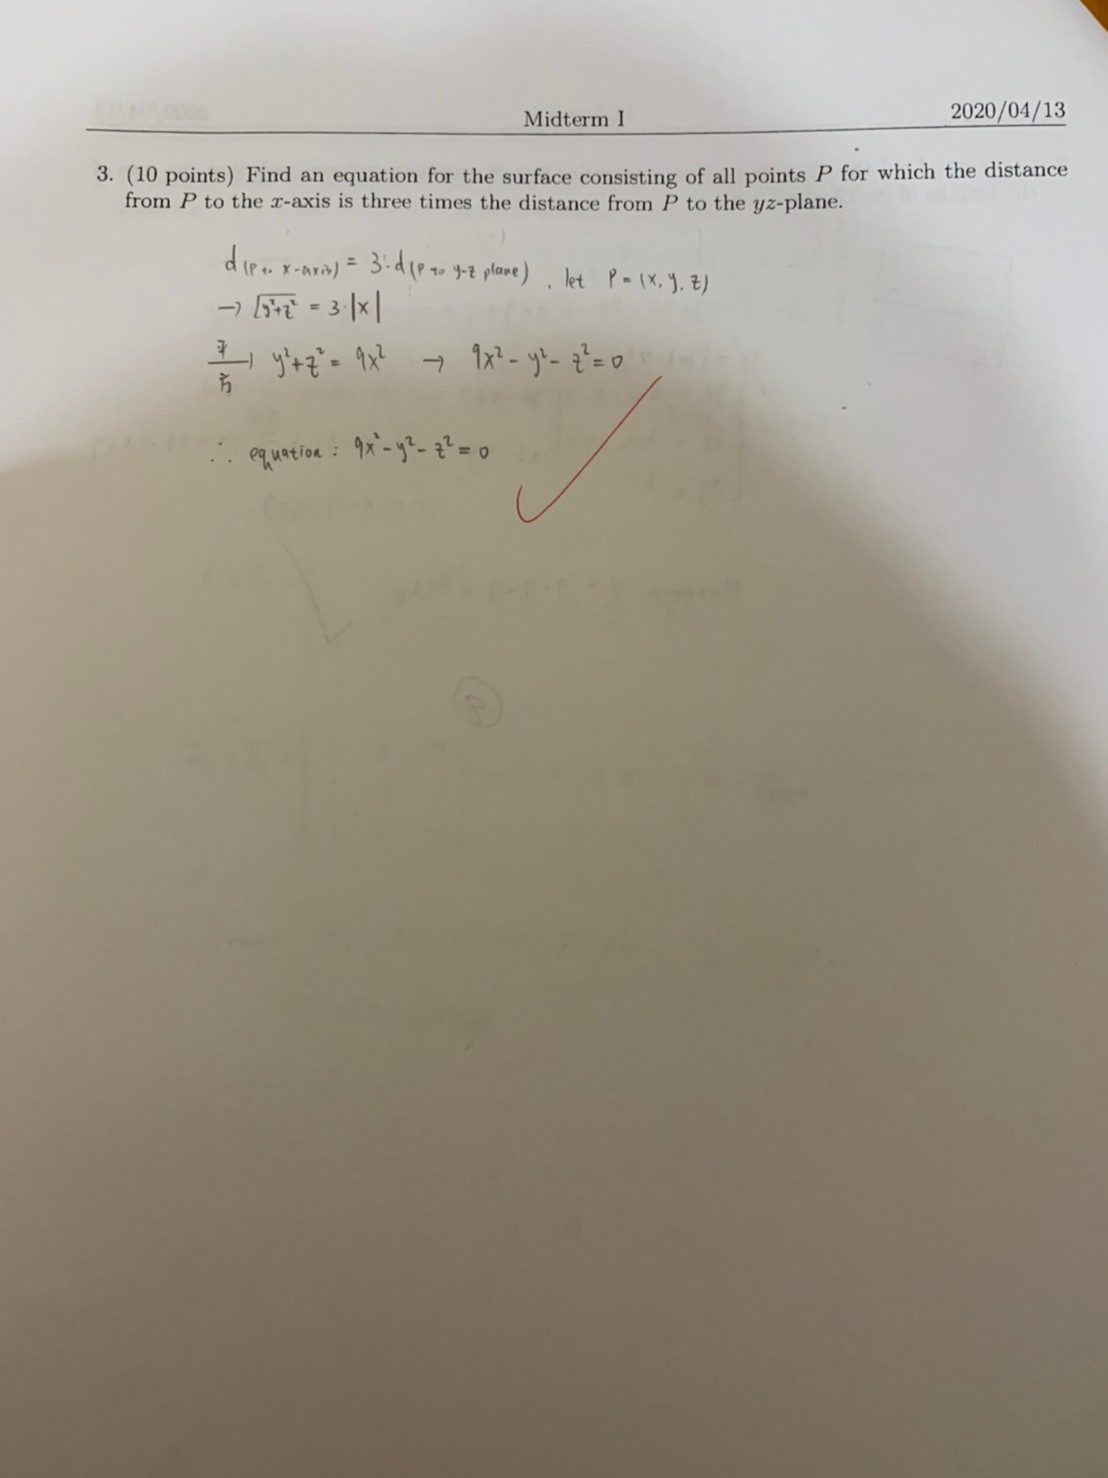 Midterm I 2020/04/13
3. (10 points) Find an equation for the surface consisting of all points P for which the distance
from P to the x-axis is three times the distance from P to the yz-plane.
d(P to x-axis) = 3·d(P to y-z plane). let P = (x, y, z)
→ √y²+z² = 3·|x|
平方→ y²+z² = 9x² → 9x² - y² - z² = 0
∴ equation : 9x² - y² - z² = 0